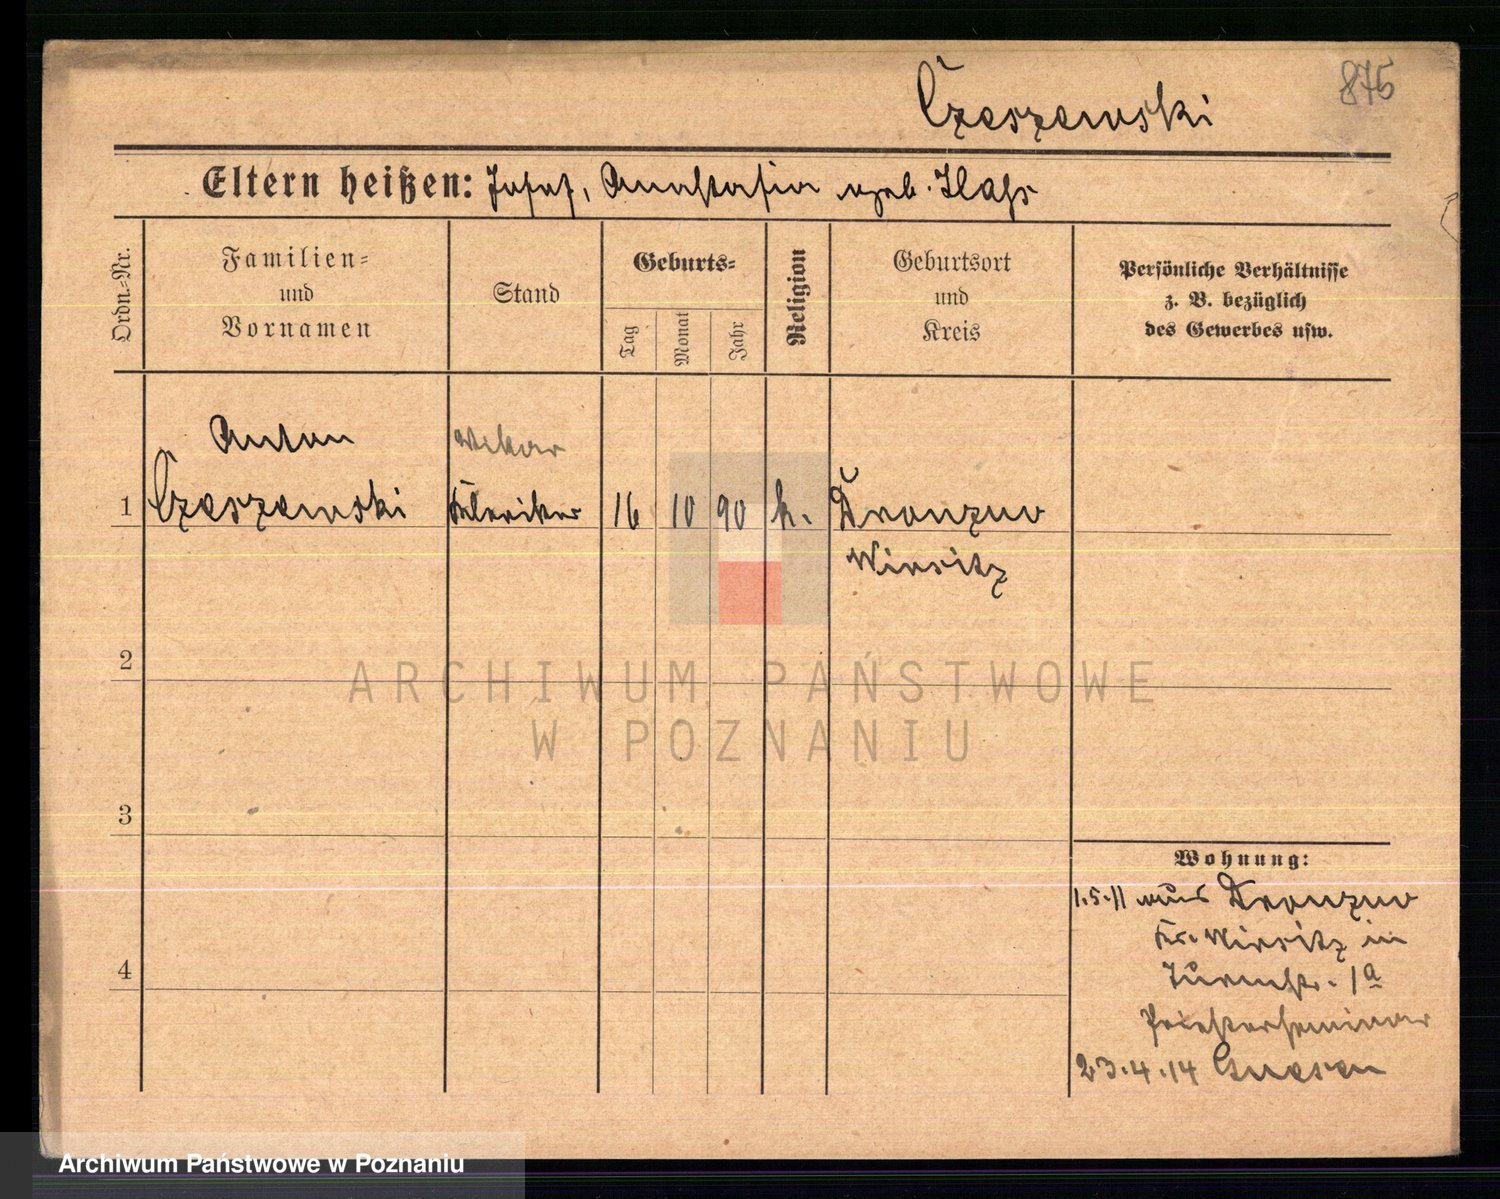 875
Czeszewski
Eltern heißen: Josef, Anastasia geb. Ilahs
Ordn.-Nr.
Familien-
und
Vornamen
Stand
Geburts-
Tag
Monat
Jahr
Religion
Geburtsort
und
Kreis
Persönliche Verhältnisse
z. B. bezüglich
des Gewerbes usw.
Anton
Vikar
1 Czeszewski Kleriker 16 10 90 k. Dronzno
Wirsitz
2
ARCHIWUM PAŃSTWOWE
W POZNANIU
3
Wohnung:
1.5.11 aus Dronzno
Kr. Wirsitz in
4
Turmstr. 1a
Priesterseminar
23.4.14 Gnesen
Archiwum Państwowe w Poznaniu